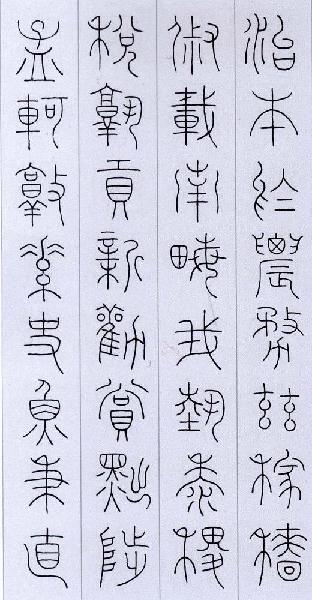 治本於農務茲稼穡
俶載南畝我藝黍稷
稅熟貢新勸賞黜陟
孟軻敦素史魚秉直